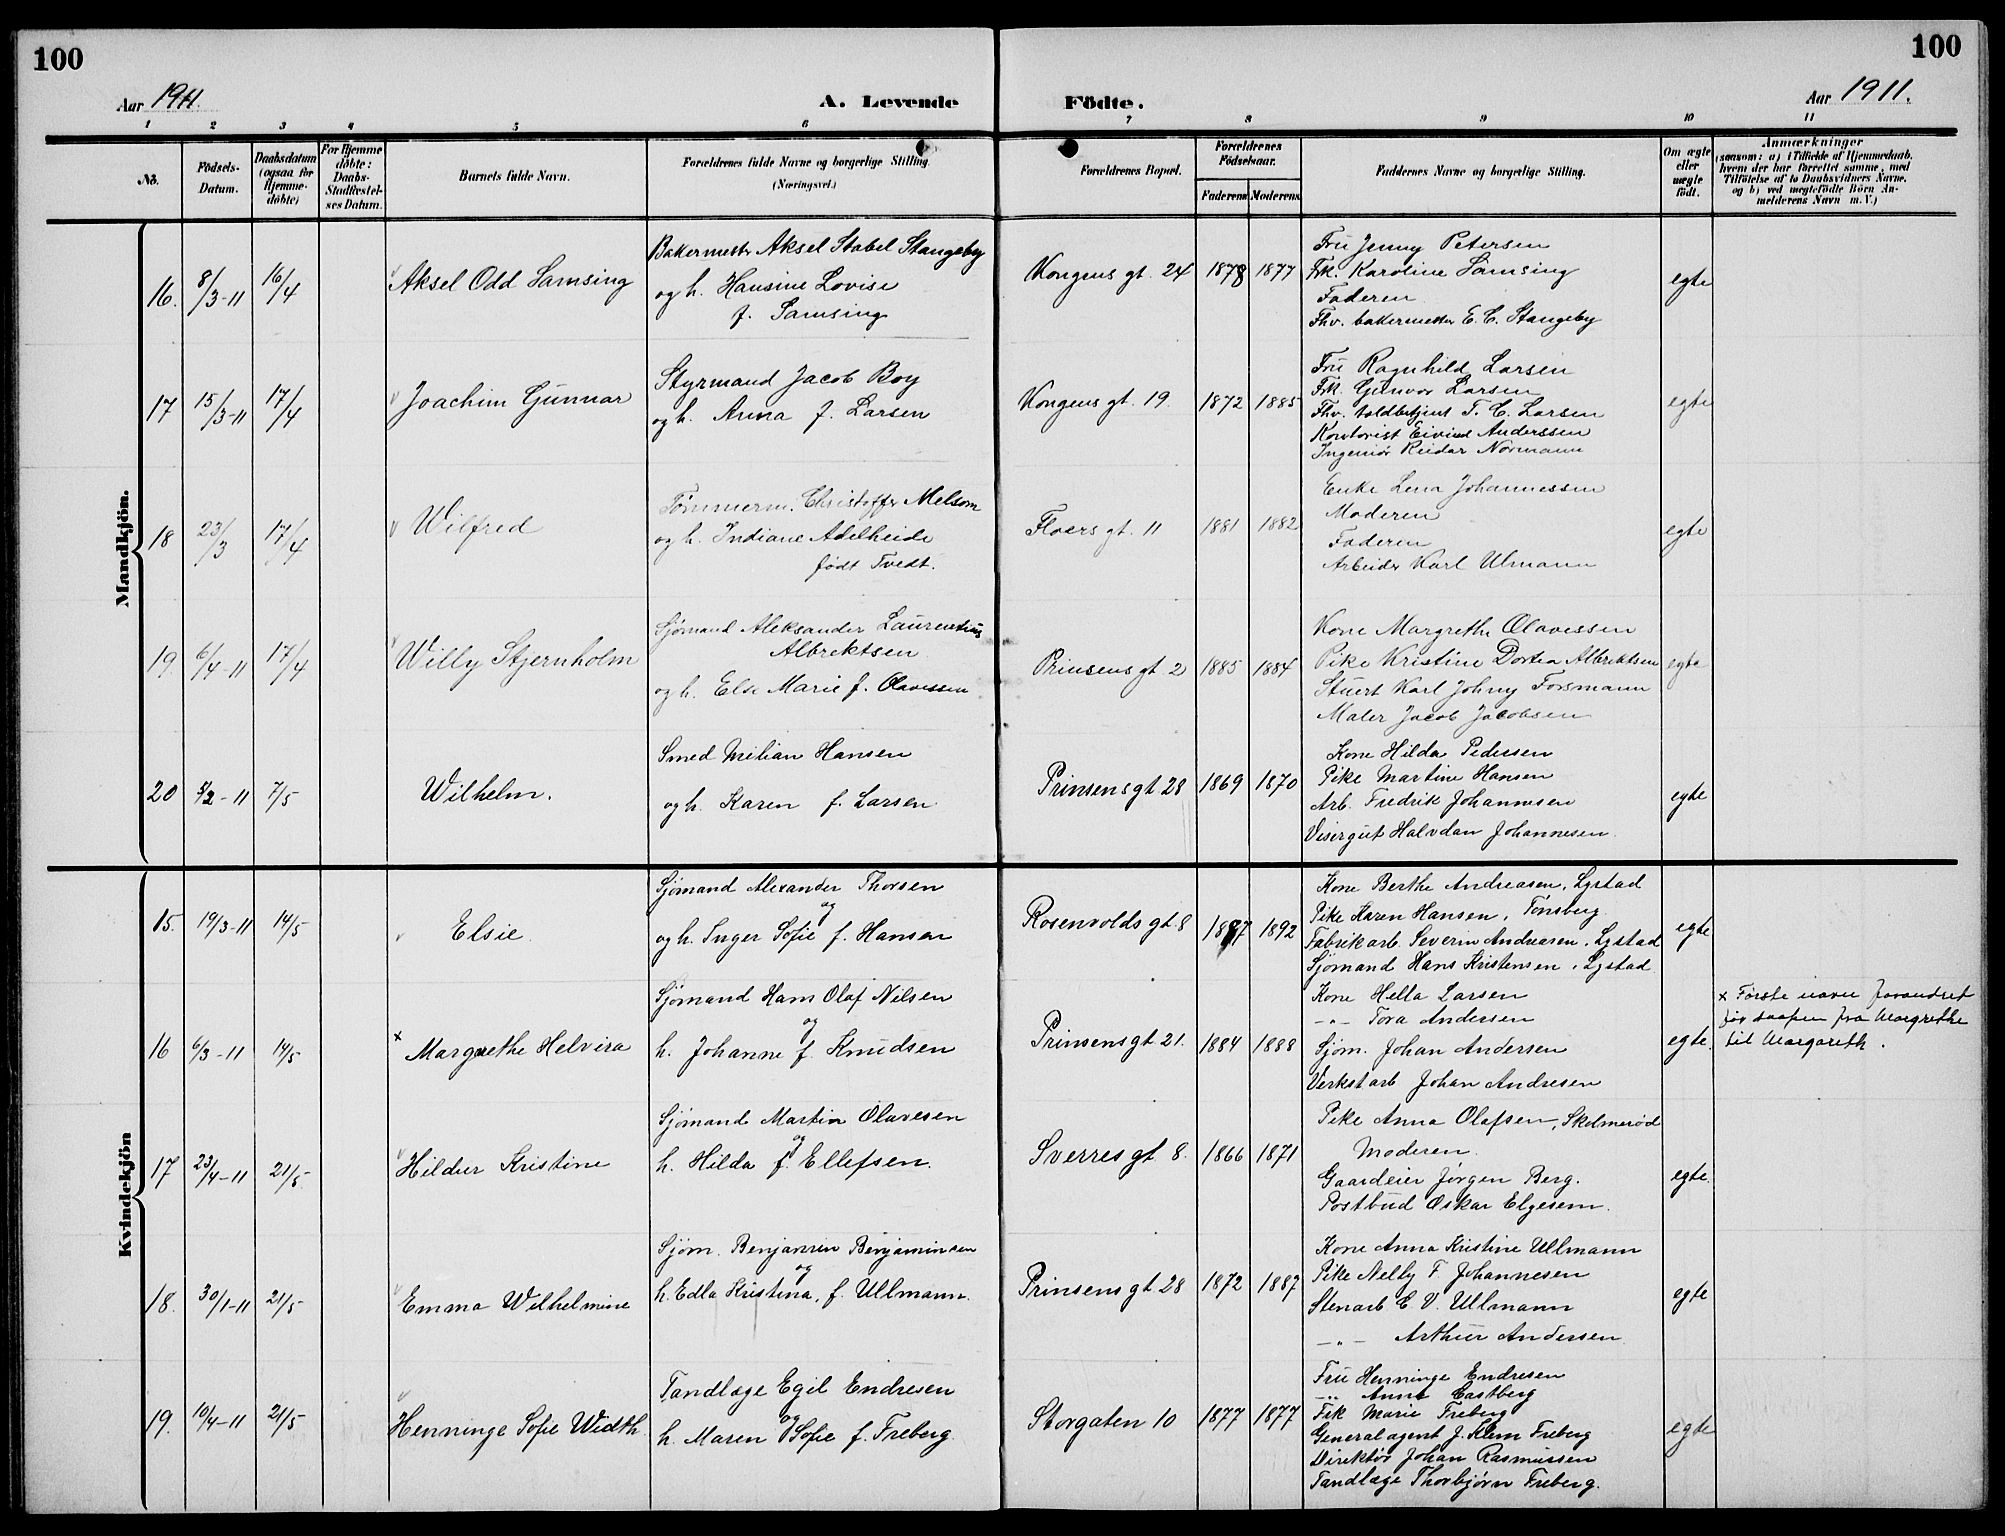 100
100
Aar 1911.
A. Levende
Födte.
Aar 1911.
1 2 3 4 5 6 7 8 9 10 11
No.
Födsels-Datum.
Daabsdatum (ogsaa for Hjemme-döbte)
For Hjemme döbte: Daabs-Stadfæstel-ses Datum.
Barnets fulde Navn.
Forældrenes fulde Navne og borgerlige Stilling.
(Næringsvei.)
Forældrenes Bopæl.
Forældrenes Födselsaar.
Faderens Moderens
Faddernes Navne og borgerlige Stilling.
Om ægte eller uægte födt.
Anmærkninger
(saasom: a) i Tilfælde af Hjemmedaab,
hvem der har forrettet samme, med
Tilföielse af to Daabsvidners Navne,
og b) ved uegtefödte Börn An-
melderens Navn m. V.)
Mandkjön.
16. 8/3-11 16/4 Aksel Odd Samsing
Bakermestr Aksel Stabel Stangeby
og h. Hansine Lovise
f. Samsing
Kongens gt. 24 1878 1877
Fru Jenny Petersen
Frk. Karoline Samsing
Faderen
Fhv. bakermestr E. C. Stangeby
egte
17 15/3-11 17/4 Joachim Gunnar
Styrmand Jacob Boy
og h. Anna f. Larsen
Kongens gt. 19. 1872 1885
Fru Ragnhild Larsen
Frk. Gunvor Larsen
Fhv. toldbetjent T. C. Larsen
Kontorist Eivind Anderssen
Ingeniör Reidar Normann
egte
18 23/3 17/4 Wilfred
Tømmerm. Christoffer Melsom
og h. Indiane Adelheide
født Tvedt.
Floers gt. 11 1881 1882
Enke Lena Johannessen
Moderen
Faderen
Arbeider Karl Ulmann
egte
19. 6/4-11 17/4 Willy Stjernholm
Sjømand Aleksander Laurentius
Albrektsen
og h. Else Marie f. Olavessen
Prinsens gt. 2 1885 1884
Kone Margrethe Olavessen
Pike Kristine Dortea Albrektsen
Stuert Karl Johny Forsmann
Maler Jacob Jacobsen
egte
20 5/2-11 7/5 Wilhelm.
Smed Milian Hansen
og h. Karen f. Larsen
Prinsens gt 28 1869 1870
Kone Hilda Pedersen
Pike Martine Hansen
Arb. Fredrik Johannesen
Visergut Halvdan Johannesen.
egte
Kvindekjön
15. 19/3-11 14/5 Elsie.
Sjømand Alexander Thorsen
og
og h. Inger Sofie f. Hansen
Rosenvolds gt. 8 1887 1892
Kone Berthe Andreasen, Lystad
Pike Karen Hansen, Tønsberg
Fabrikarb. Severin Andreasen, Lystad
Sjømand Hans Kristensen, Lystad
egte
16 6/3-11 14/5 × Margrethe Helvira
Sjømand Hans Olaf Nilsen
og
h. Johanne f. Knudsen
Prinsens gt 21. 1884 1888
Kone Hella Larsen
-"- Tora Andersen
Sjøm. Johan Andersen
Verkstarb Johan Andresen
egte.
× Første navn forandret
før daapen fra Margrethe
til Margareth.
17 23/4-11 21/5 Hildur Kristine
Sjømand Martin Olavesen
og
h. Hilda f. Ellefsen.
Sverres gt 8. 1866 1871
Pike Anna Olafsen, Skelmerød
Moderen.
Gaardeier Jørgen Berg.
Postbud Oskar Elgesem.
egte.
18. 30/1-11 21/5 Emma Wilhelmine
Sjøm. Benjamin Benjaminsen
og
h. Edla Kristina, f. Ullmann.
Prinsens gt 28 1872 1887
Kone Anna Kristine Ullmann
Pike Nelly F. Johannesen
Stenarb E. V. Ullmann
-"- Arthur Andersen
egte
19. 10/4-11 21/5 Henninge Sofie Width.
Tandlæge Egil Endresen
og
h. Maren Sofie f. Freberg.
Storgaten 10 1877 1877
Fru Henninge Endresen
-"- Anna Castberg
Frk Marie Freberg
Generalagent J. Klem Freberg
Direktør Johan Rasmussen
Tandlæge Thorbjørn Freberg.
egte